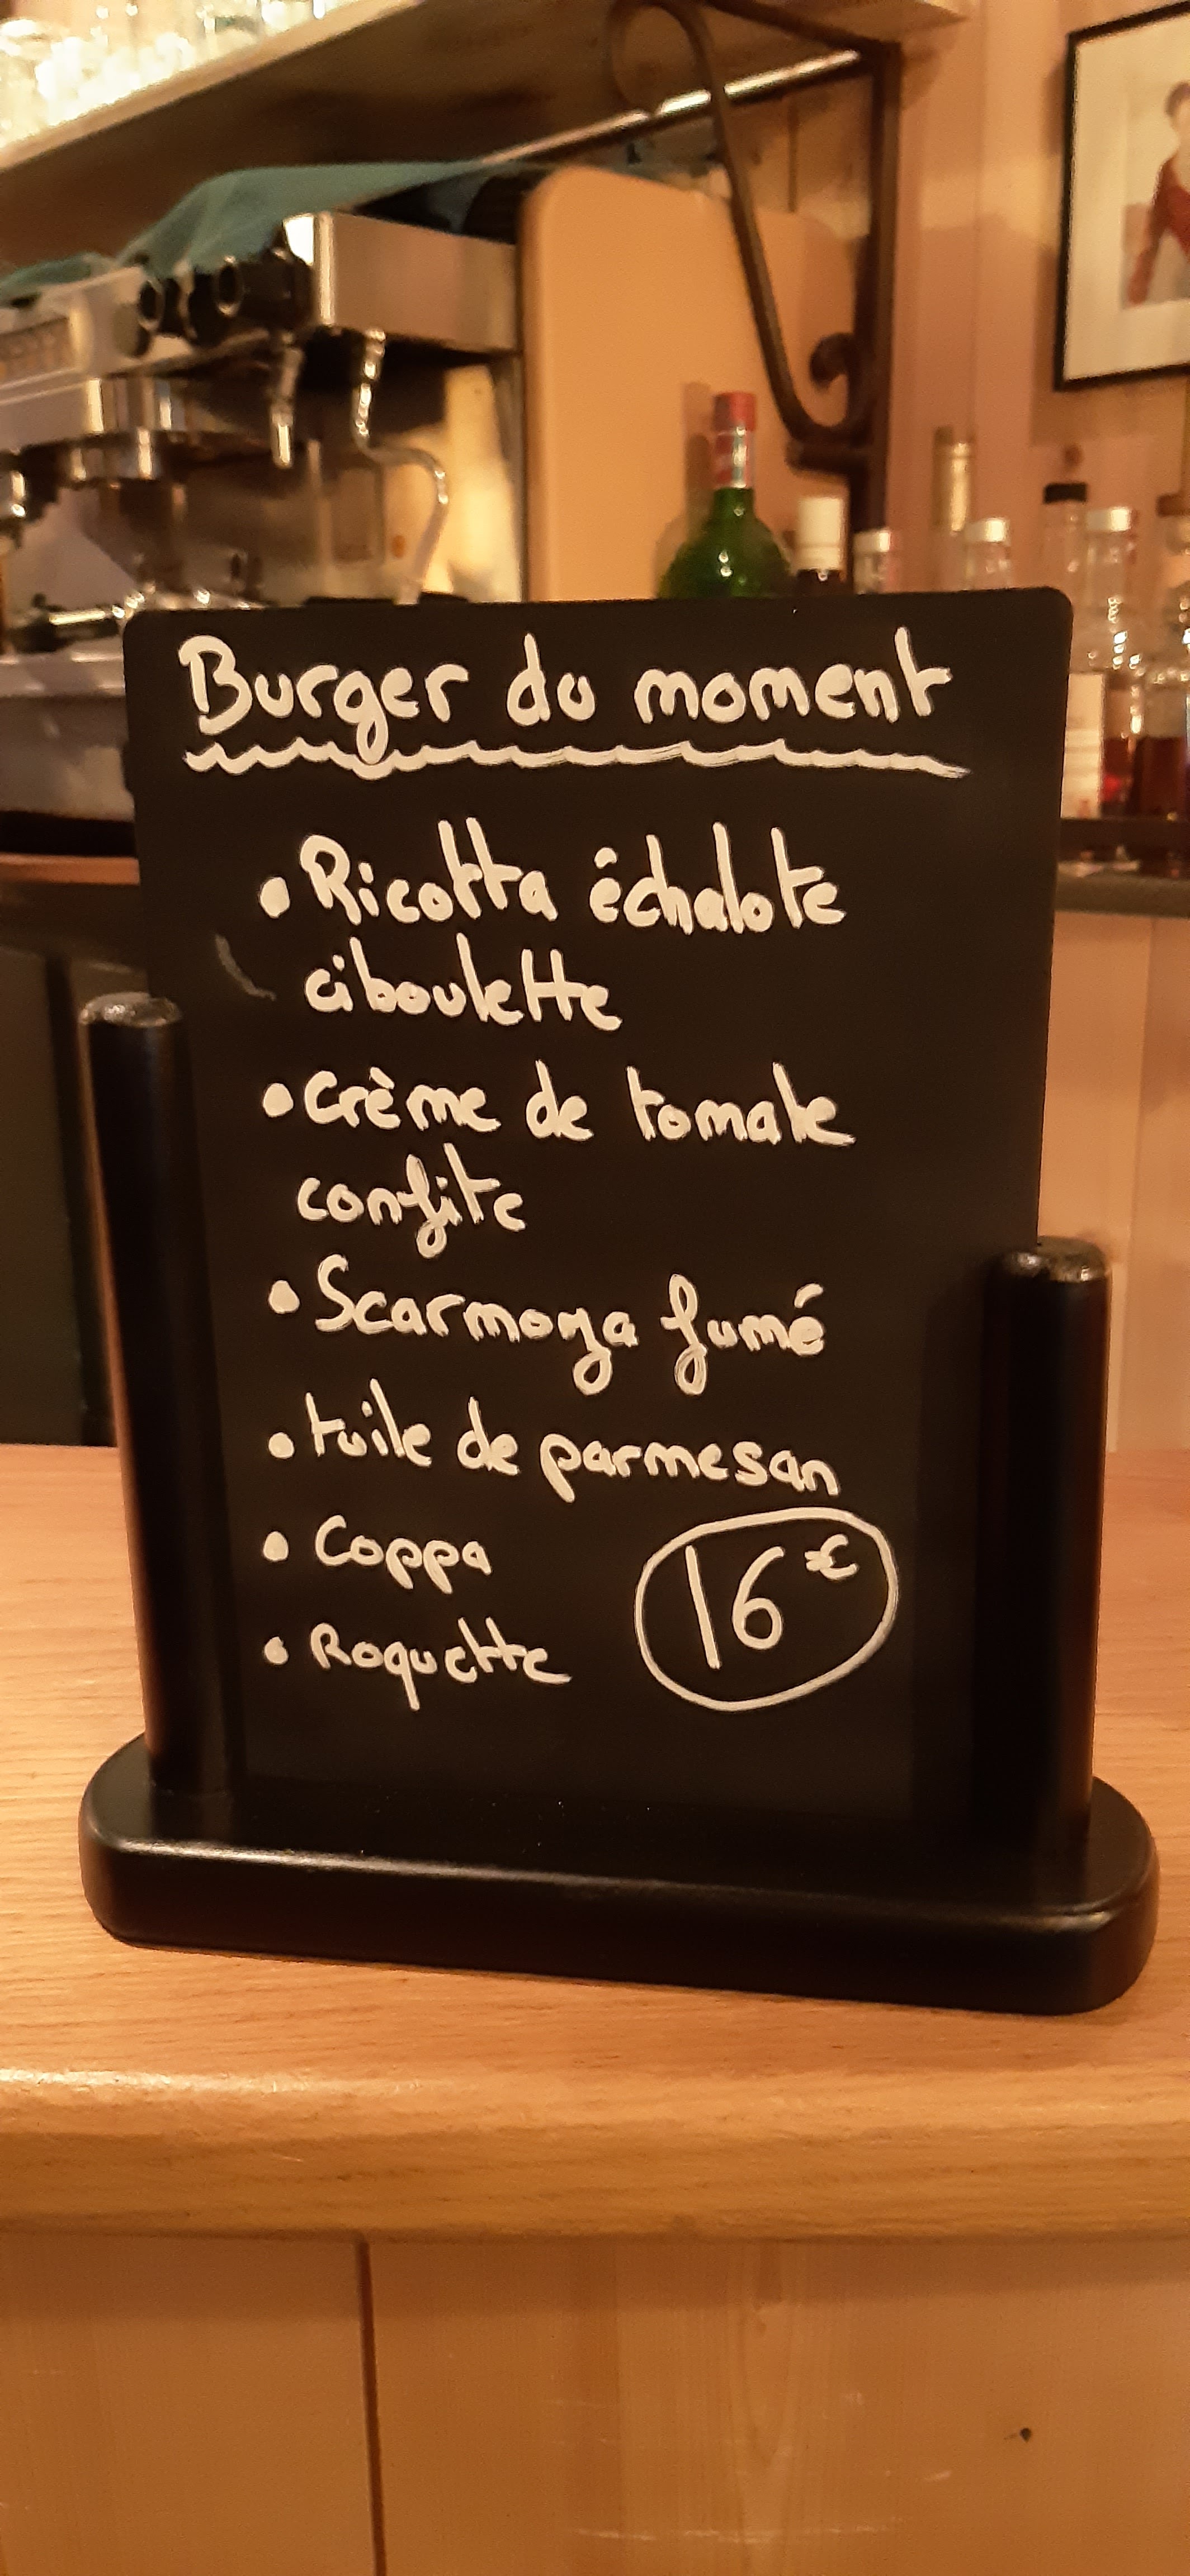 Burger du moment
• Ricotta échalote
ciboulette
• Crème de tomate
confite
• Scarmoza fumé
• tuile de parmesan
• Coppa
16€
• Roquette